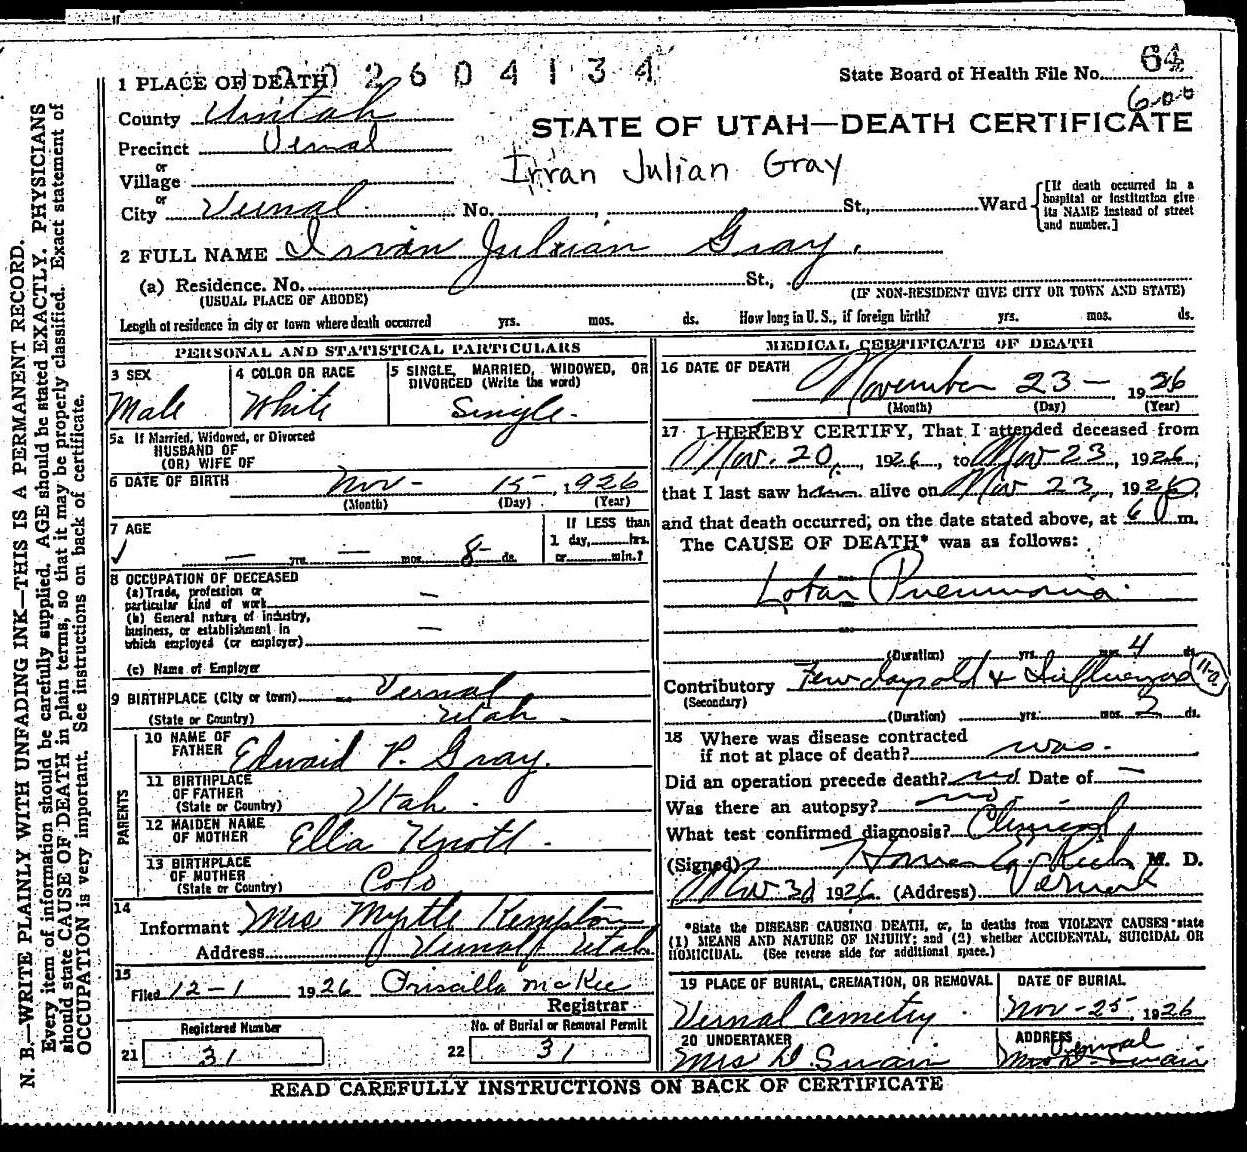 1 PLACE OF DEATH 2604134
State Board of Health File No. 64
6-0-0
County Uintah
STATE OF UTAH—DEATH CERTIFICATE
Precinct Vernal
or
Village
Irvan Julian Gray
or
City Vernal No. St., Ward [If death occurred in a hospital or institution give its NAME instead of street and number.]
2 FULL NAME Irvan Julian Gray.
(a) Residence. No. St.,
(USUAL PLACE OF ABODE) (IF NON-RESIDENT GIVE CITY OR TOWN AND STATE)
Length of residence in city or town where death occurred yrs. mos. ds. How long in U. S., if foreign birth? yrs. mos. ds.
PERSONAL AND STATISTICAL PARTICULARS
3 SEX
Male
4 COLOR OR RACE
White
5 SINGLE, MARRIED, WIDOWED, OR
DIVORCED (Write the word)
Single.
5a If Married, Widowed, or Divorced
HUSBAND OF
(OR) WIFE OF
6 DATE OF BIRTH Nov - 15, 1926
(Month) (Day) (Year)
7 AGE
— yrs. — mos. 8 ds.
If LESS than
1 day, hrs.
or min.?
8 OCCUPATION OF DECEASED
(a) Trade, profession or
particular kind of work —
(b) General nature of industry,
business, or establishment in
which employed (or employer) —
(c) Name of Employer
9 BIRTHPLACE (City or town) Vernal
(State or Country) Utah
PARENTS
10 NAME OF
FATHER Edward P. Gray.
11 BIRTHPLACE
OF FATHER
(State or Country) Utah.
12 MAIDEN NAME
OF MOTHER Ella Knott.
13 BIRTHPLACE
OF MOTHER
(State or Country) Colo
14
Informant Mrs Myrtle Kempton
Address Vernal Utah
15
Filed 12-1 1926 Priscilla McKee
Registrar
Registered Number
21 31
No. of Burial or Removal Permit
22 31
MEDICAL CERTIFICATE OF DEATH
16 DATE OF DEATH
November 23 - 1926
(Month) (Day) (Year)
17 I HEREBY CERTIFY, That I attended deceased from
Nov. 20, 1926, to Nov 23, 1926,
that I last saw him alive on Nov 23, 1926,
and that death occurred, on the date stated above, at 6 P m.
The CAUSE OF DEATH* was as follows:
Lobar Pneumonia
(Duration) yrs. mos. 4 ds.
Contributory Few days old & Influenza 11-a
(Secondary)
(Duration) yrs. mos. 2 ds.
18 Where was disease contracted
if not at place of death? was.
Did an operation precede death? no Date of —
Was there an autopsy? no
What test confirmed diagnosis? Clinical
(Signed) M. D.
1926. (Address) Vernal
*State the DISEASE CAUSING DEATH, or, in deaths from VIOLENT CAUSES state
(1) MEANS AND NATURE OF INJURY; and (2) whether ACCIDENTAL, SUICIDAL OR
HOMICIDAL. (See reverse side for additional space.)
19 PLACE OF BURIAL, CREMATION, OR REMOVAL
Vernal Cemetry.
DATE OF BURIAL
Nov-25, 1926
20 UNDERTAKER
Mrs D. Swain
ADDRESS
Vernal
READ CAREFULLY INSTRUCTIONS ON BACK OF CERTIFICATE
N. B.—WRITE PLAINLY WITH UNFADING INK—THIS IS A PERMANENT RECORD.
Every item of information should be carefully supplied. AGE should be stated EXACTLY. PHYSICIANS
should state CAUSE OF DEATH in plain terms, so that it may be properly classified. Exact statement of
OCCUPATION is very important. See instructions on back of certificate.